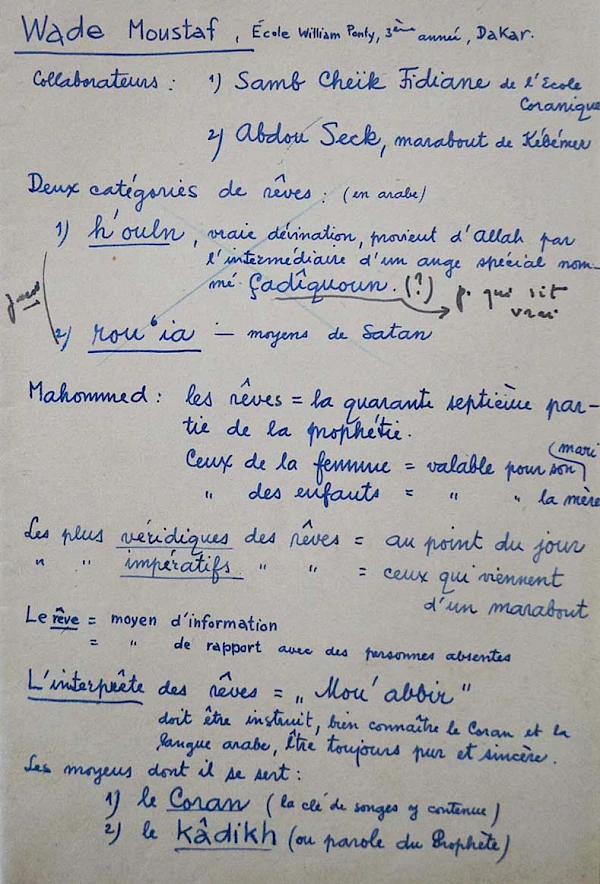 Wade Moustaf, École William Ponty, 3ème année, Dakar.
Collaborateurs : 1) Samb Cheïk Fidiane de l'École
Coranique
2) Abdou Seck, marabout de Kébémer
Deux catégories de rêves : (en arabe)
1) h'ouln, vraie dévination, provient d'Allah par
l'intermédiaire d'un ange spécial nom-
mé çadîquoun. (?) p. qui dit
vrai
2) rou'ia — moyens de Satan
Mahommed : les rêves = la quarante septième par-
tie de la prophétie.
Ceux de la femme = valable pour son (mari
" des enfants = " " la mère
Les plus véridiques des rêves = au point du jour
" " impératifs " " = ceux qui viennent
d'un marabout
Le rêve = moyen d'information
= " de rapport avec des personnes absentes
L'interprête des rêves = „ Mou'abbir "
doit être instruit, bien connaître le Coran et la
langue arabe, être toujours pur et sincère.
Les moyens dont il se sert :
1) le Coran (la clé de songes y contenue)
2) le kâdikh (ou parole du Prophète)